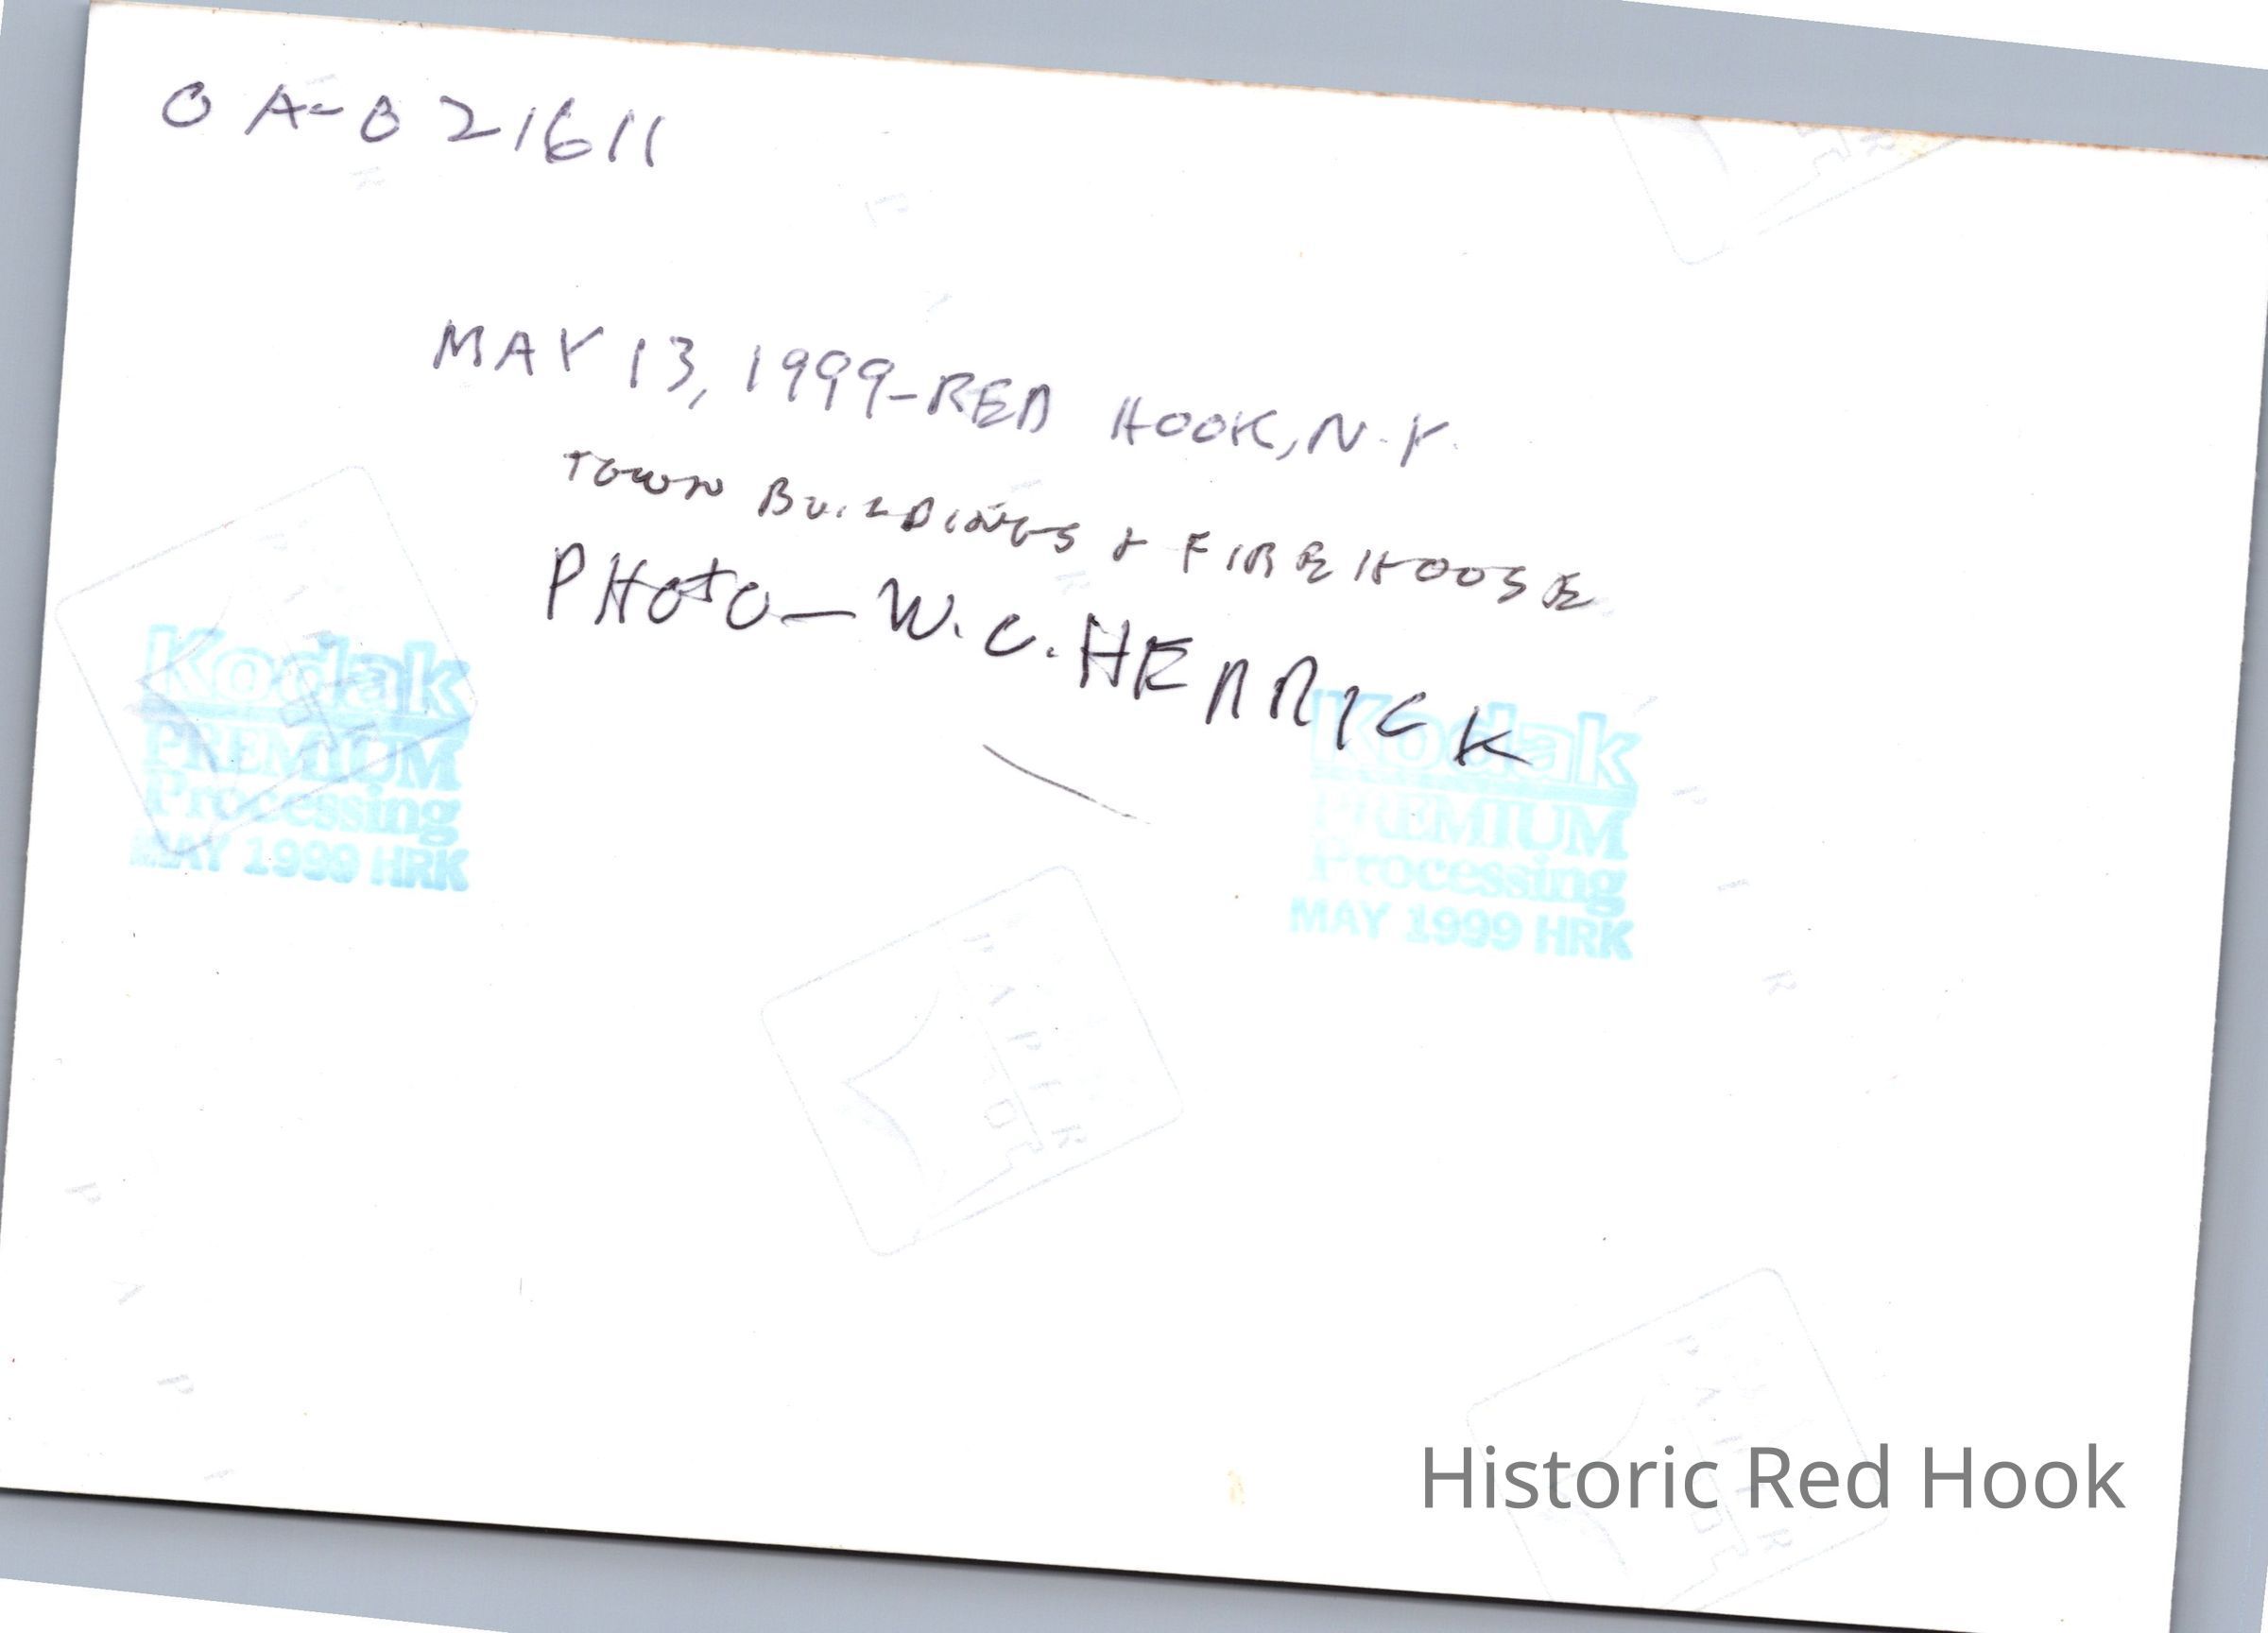 OA-021611
MAY 13, 1999-RED HOOK, N.Y.
TOWN BUILDINGS & FIREHOUSE
PHOTO-W.C. HERRICK
Kodak
PREMIUM
Processing
MAY 1999 HRK
Kodak
PREMIUM
Processing
MAY 1999 HRK
PAPER
Historic Red Hook